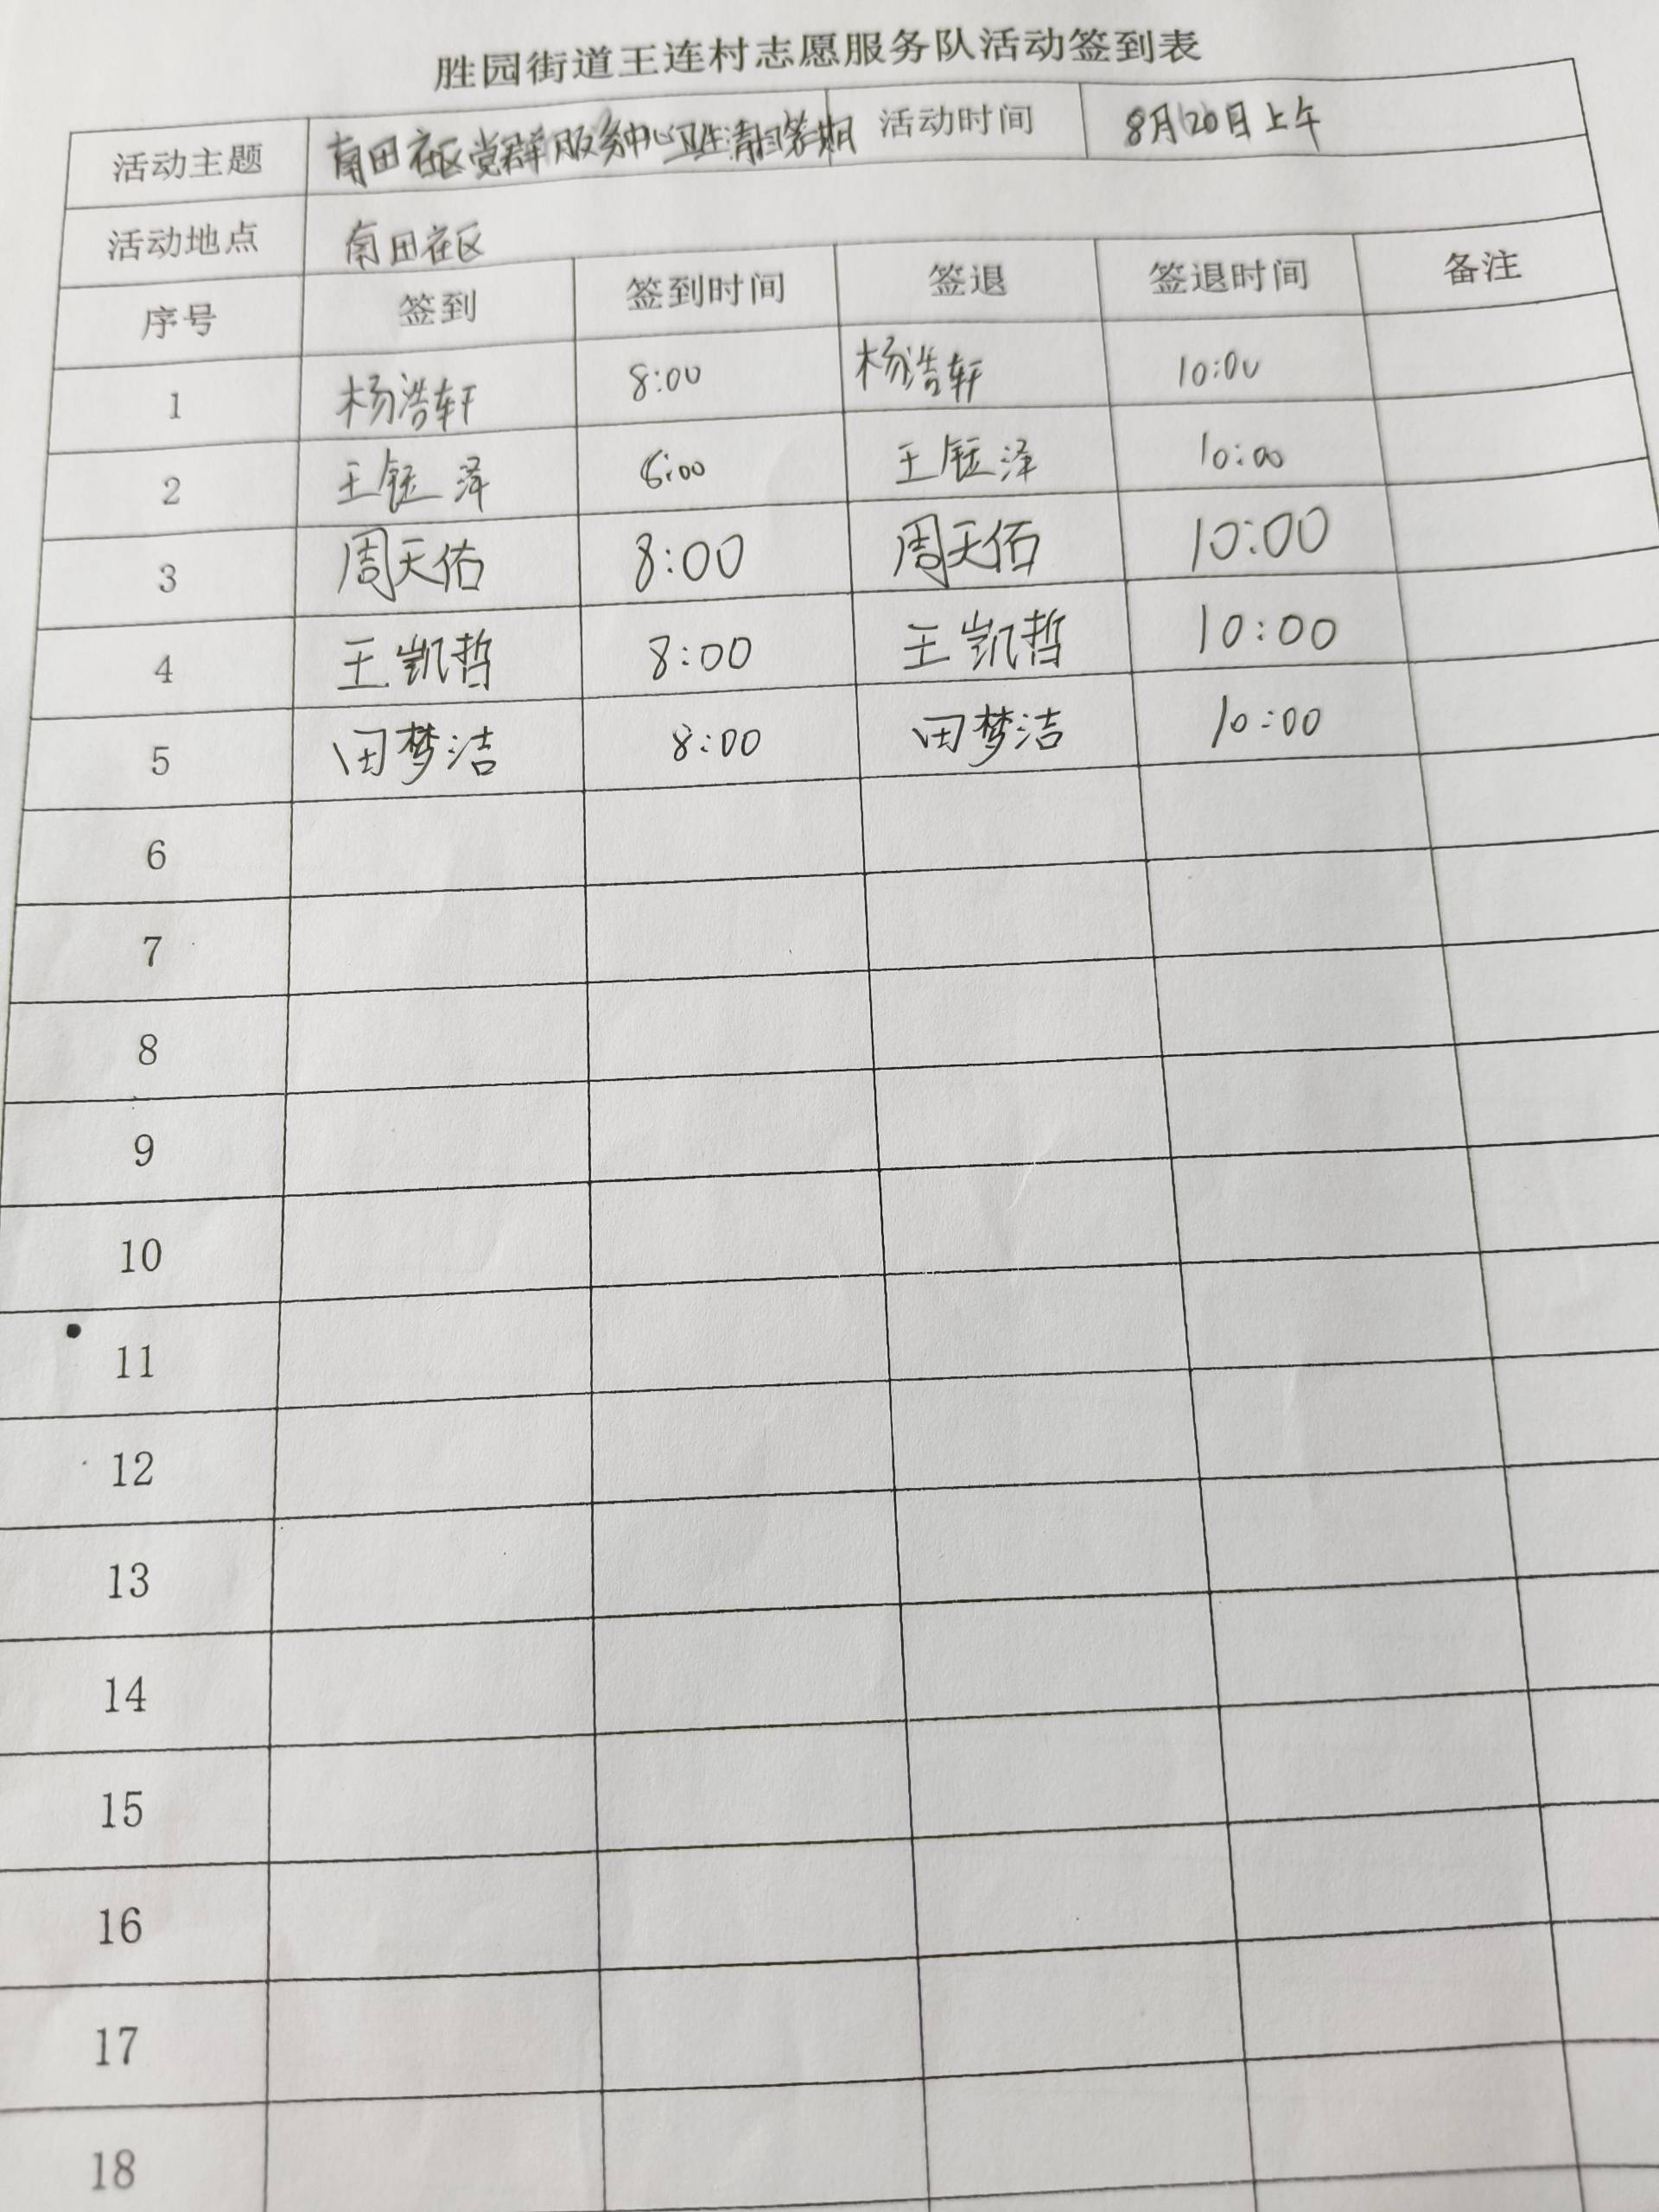 胜园街道王连村志愿服务队活动签到表
活动主题 南田社区党群服务中心卫生清扫暑期 活动时间 8月20日上午
活动地点 南田社区
序号 签到 签到时间 签退 签退时间 备注
1 杨浩轩 8:00 杨浩轩 10:00
2 王钰泽 8:00 王钰泽 10:00
3 周天佑 8:00 周天佑 10:00
4 王凯哲 8:00 王凯哲 10:00
5 田梦洁 8:00 田梦洁 10:00
6
7
8
9
10
11
12
13
14
15
16
17
18